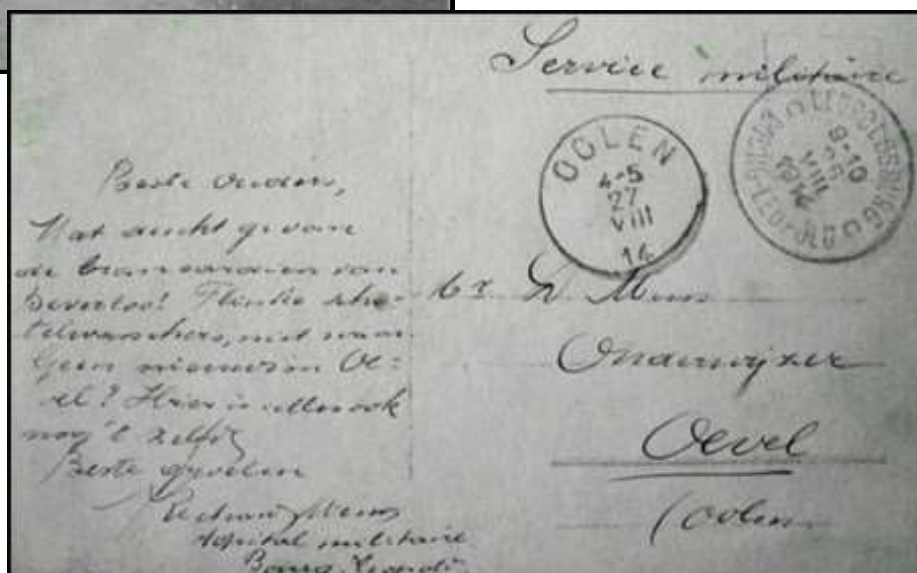 Service militaire
OOLEN
4-5
27
VIII
14
LEOPOLDSBURG
BOURG-LEOPOLD
9-10
VIII
1914
Beste Ouders,
Wat dunkt ge van
de brancardiers van
Beverloo! Flinke scho-
telwasschers, niet waar
Geen nieuws in Oe-
vel? Hier is alles ook
nog 't zelfde
Beste groeten
Mens
Hopital militaire
Bourg-Leopold
Mr Mens
Onderwijzer
Oevel
(Oolen